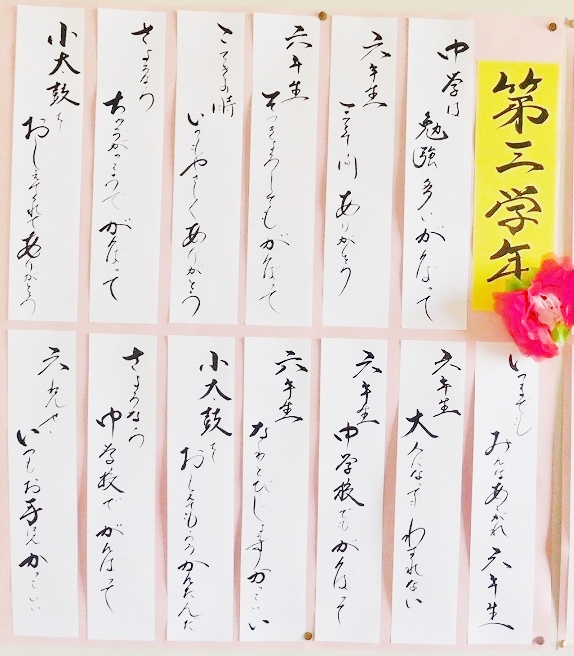 第三学年
中学は
勉強多いがんばって
六年生
三年間ありがとう
六年生
そつぎょうしてもがんばって
こてきの時
いつもやさしくありがとう
さようなら
ちゅうがっこうでがんばって
小太鼓を
おしえてくれてありがとう
いつまでも
みんなあこがれ六年生
六年生
大人になってもわすれない
六年生
中学校でもがんばって
六年生
なわとびじょうずかっこいい
小太鼓を
おしえてもらうかんたんだ
さようなら
中学校でがんばって
いつもお手本かっこいい